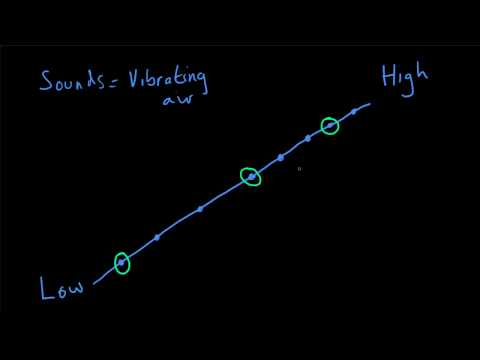 Sounds = Vibrating
air
High
Low